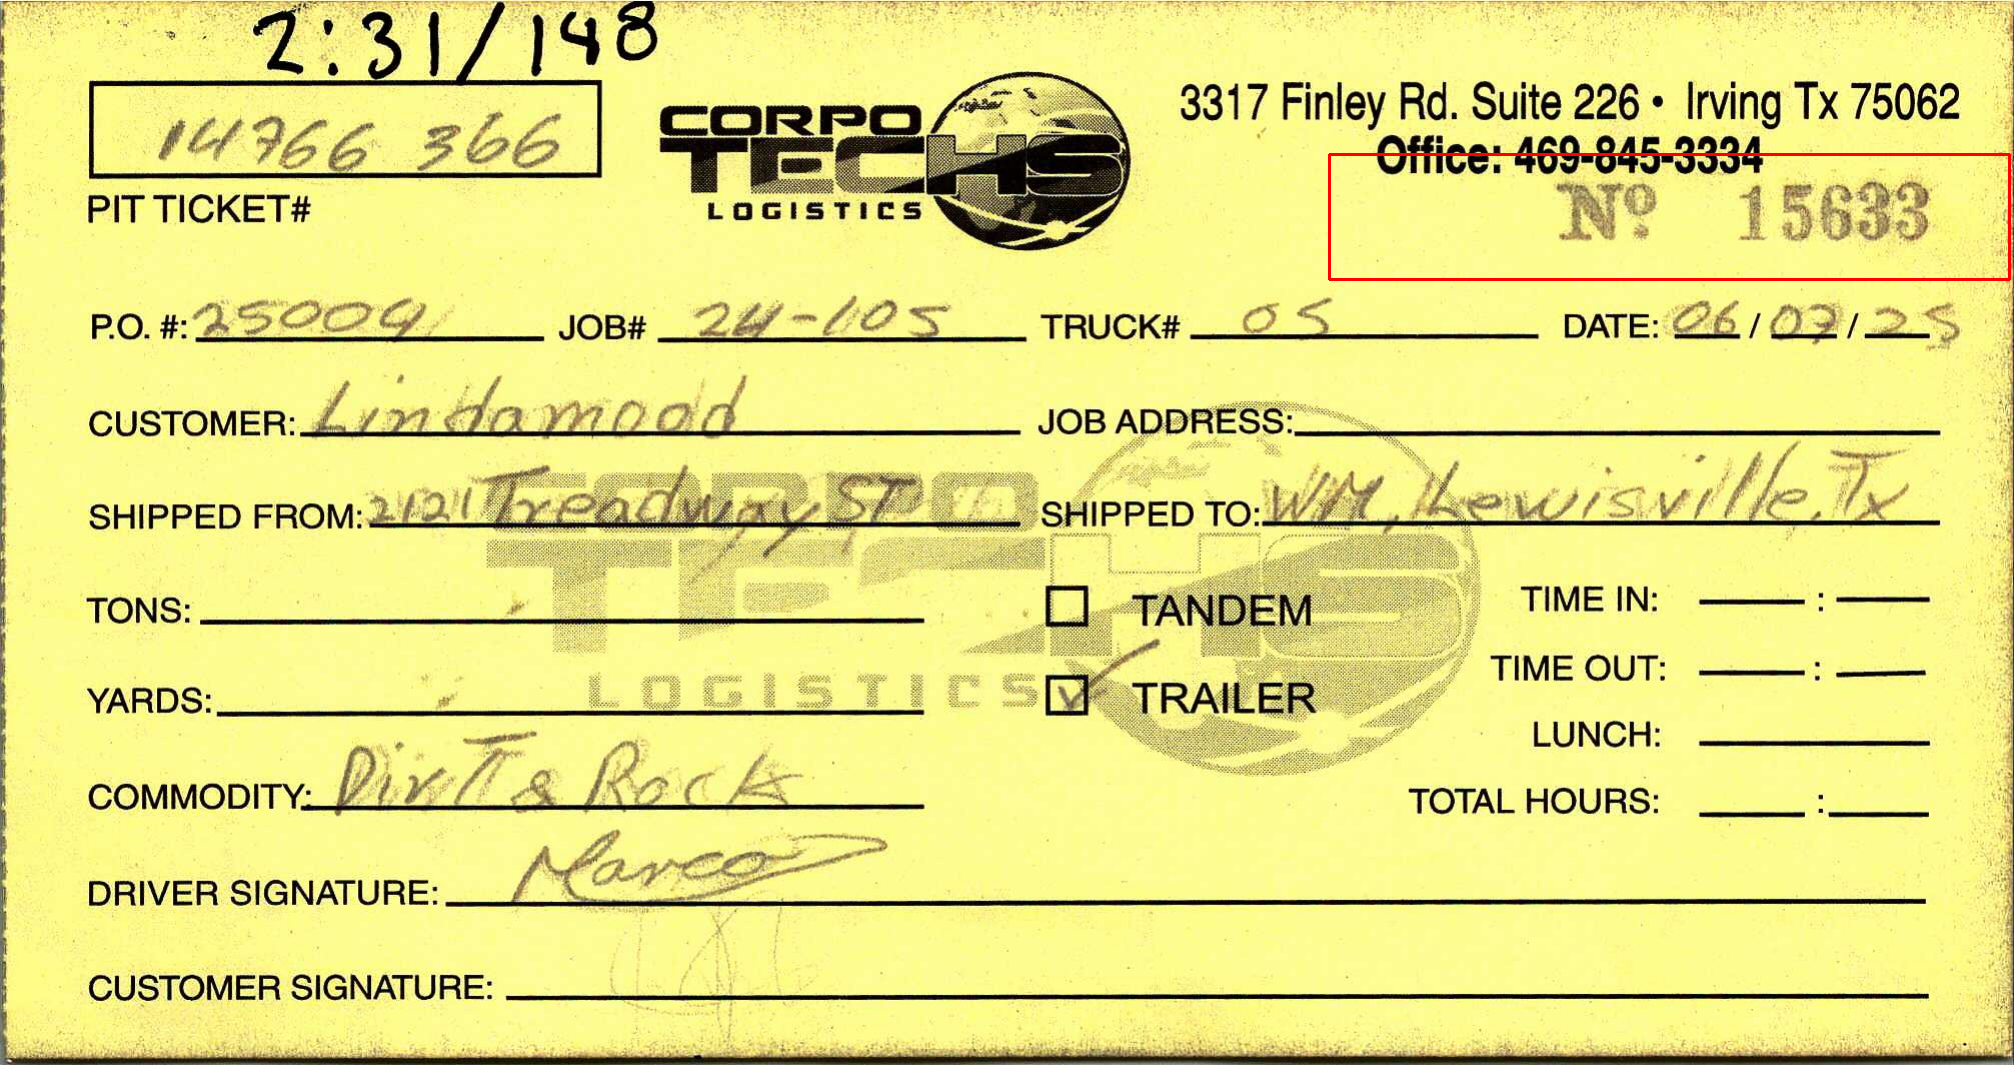 2:31/148
14766 366
PIT TICKET#
CORPO
TECHS
LOGISTICS
3317 Finley Rd. Suite 226 • Irving Tx 75062
Office: 469-845-3334
Nº 15633
P.O. #: 25009 JOB# 24-105 TRUCK# 05 DATE: 06/07/25
CUSTOMER: Lindamood JOB ADDRESS:
SHIPPED FROM: 2121 Treadway ST SHIPPED TO: WM, Lewisville, Tx
CORPO
TECHS
LOGISTICS
TONS: TANDEM TIME IN: :
YARDS: TRAILER TIME OUT: :
LUNCH:
COMMODITY: Dirt & Rock TOTAL HOURS: :
DRIVER SIGNATURE: Marco
CUSTOMER SIGNATURE: